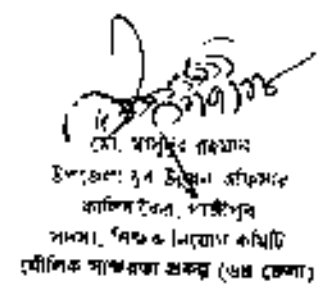 মো. মাহবুবুর রহমান
উপজেলা যুব উন্নয়ন অফিসার
কালিয়াকৈর, গাজীপুর
সদস্য, শিক্ষক নিয়োগ কমিটি
মৌলিক সাক্ষরতা প্রকল্প (৬৪ জেলা)